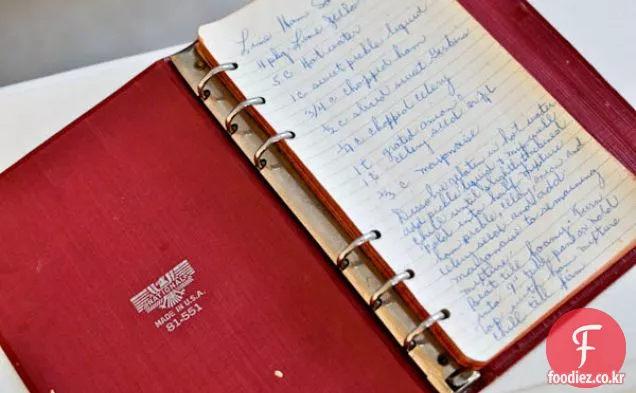 NATIONAL
MADE IN U.S.A.
81-551
Lime Ham
4 pkg Lime Jello
5 c Hot water
1 c sweet pickle liquid
3/4 c chopped ham
1/2 c sliced sweet Gerkins
1/4 c chopped celery
1 t grated onion
1 t celery seed
2/3 c mayonaise
Dissolve gelatin in hot water
add pickle liquid
chill until slightly thickened
Fold into half mixture
ham, pickle, celery, onion and
celery seed and add
mayonaise to remaining
mixture
Beat till foamy.
into 9 in. pan or mold
top with ham mixture
chill till firm
foodiez.co.kr